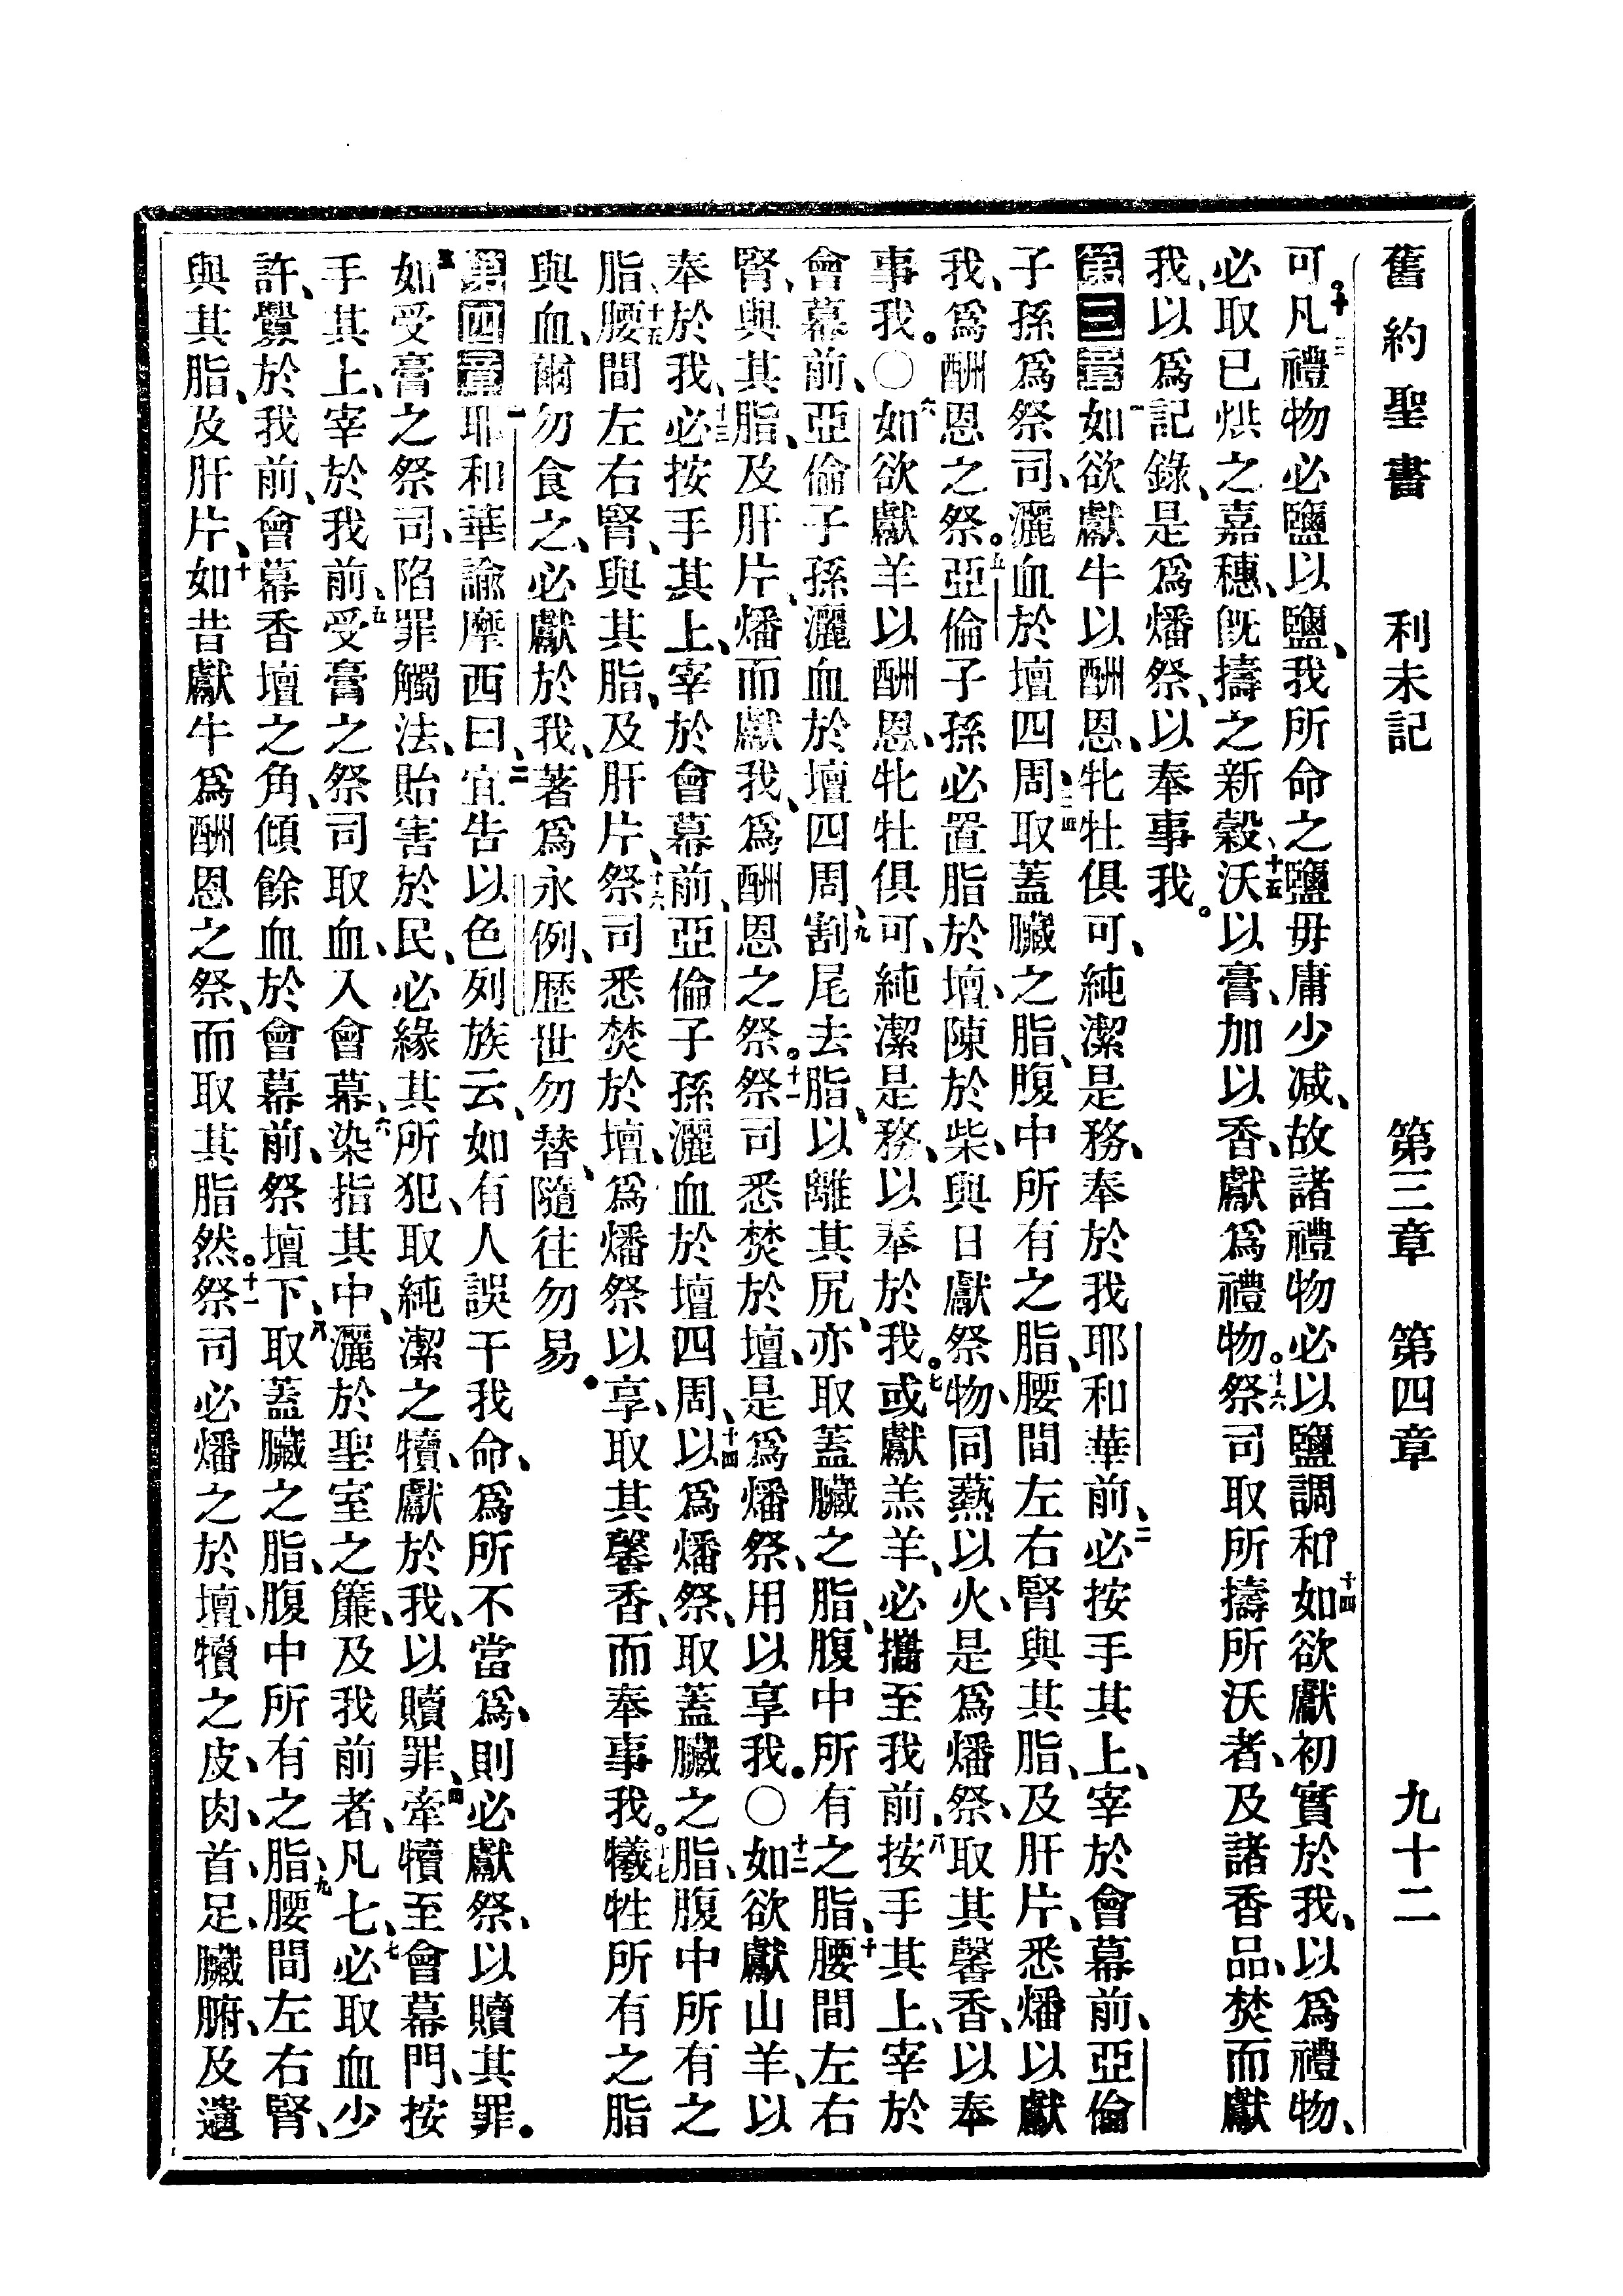 舊約聖書 利未記 第三章 第四章 九十二
可。十三凡禮物必鹽以鹽、我所命之鹽毋庸少减、故諸禮物必以鹽調和。十四如欲獻初實於我、以爲禮物、
必取已烘之嘉穗、旣擣之新穀、十五沃以膏、加以香、獻爲禮物。十六祭司取所擣所沃者、及諸香品、焚而獻
我、以爲記錄、是爲燔祭、以奉事我。
第三章一如欲獻牛以酬恩、牝牡俱可、純潔是務、奉於我耶和華前、二必按手其上、宰於會幕前、亞倫
子孫爲祭司、灑血於壇四周、三四取蓋臟之脂、腹中所有之脂、腰間左右腎與其脂、及肝片、悉燔以獻
我、爲酬恩之祭。五亞倫子孫必置脂於壇、陳於柴、與日獻祭物、同爇以火、是爲燔祭、取其馨香、以奉
事我。〇六如欲獻羊以酬恩、牝牡俱可、純潔是務、以奉於我。七或獻羔羊、必攜至我前、八按手其上、宰於
會幕前、亞倫子孫灑血於壇四周、九割尾去脂、以離其尻、亦取蓋臟之脂、腹中所有之脂、十腰間左右
腎、與其脂、及肝片、燔而獻我、爲酬恩之祭。十一祭司悉焚於壇、是爲燔祭、用以享我。〇十二如欲獻山羊、以
奉於我、十三必按手其上、宰於會幕前、亞倫子孫灑血於壇四周、十四以爲燔祭、取蓋臟之脂、腹中所有之
脂、十五腰間左右腎、與其脂、及肝片、十六祭司悉焚於壇、爲燔祭以享、取其馨香、而奉事我。十七犧牲所有之脂
與血、爾勿食之、必獻於我、著爲永例、歷世勿替、隨往勿易。
第四章一耶和華諭摩西曰、二宜告以色列族云、如有人誤干我命、爲所不當爲、則必獻祭、以贖其罪。
三如受膏之祭司、陷罪觸法、貽害於民、必緣其所犯、取純潔之犢、獻於我、以贖罪、四牽犢至會幕門、按
手其上、宰於我前、五受膏之祭司取血、入會幕、六染指其中、灑於聖室之簾、及我前者、凡七、七必取血少
許、釁於我前、會幕香壇之角、傾餘血於會幕前、祭壇下、八取蓋臟之脂、腹中所有之脂、九腰間左右腎、
與其脂、及肝片、十如昔獻牛爲酬恩之祭、而取其脂然。十一祭司必燔之於壇、犢之皮、肉、首、足、臟腑、及遺